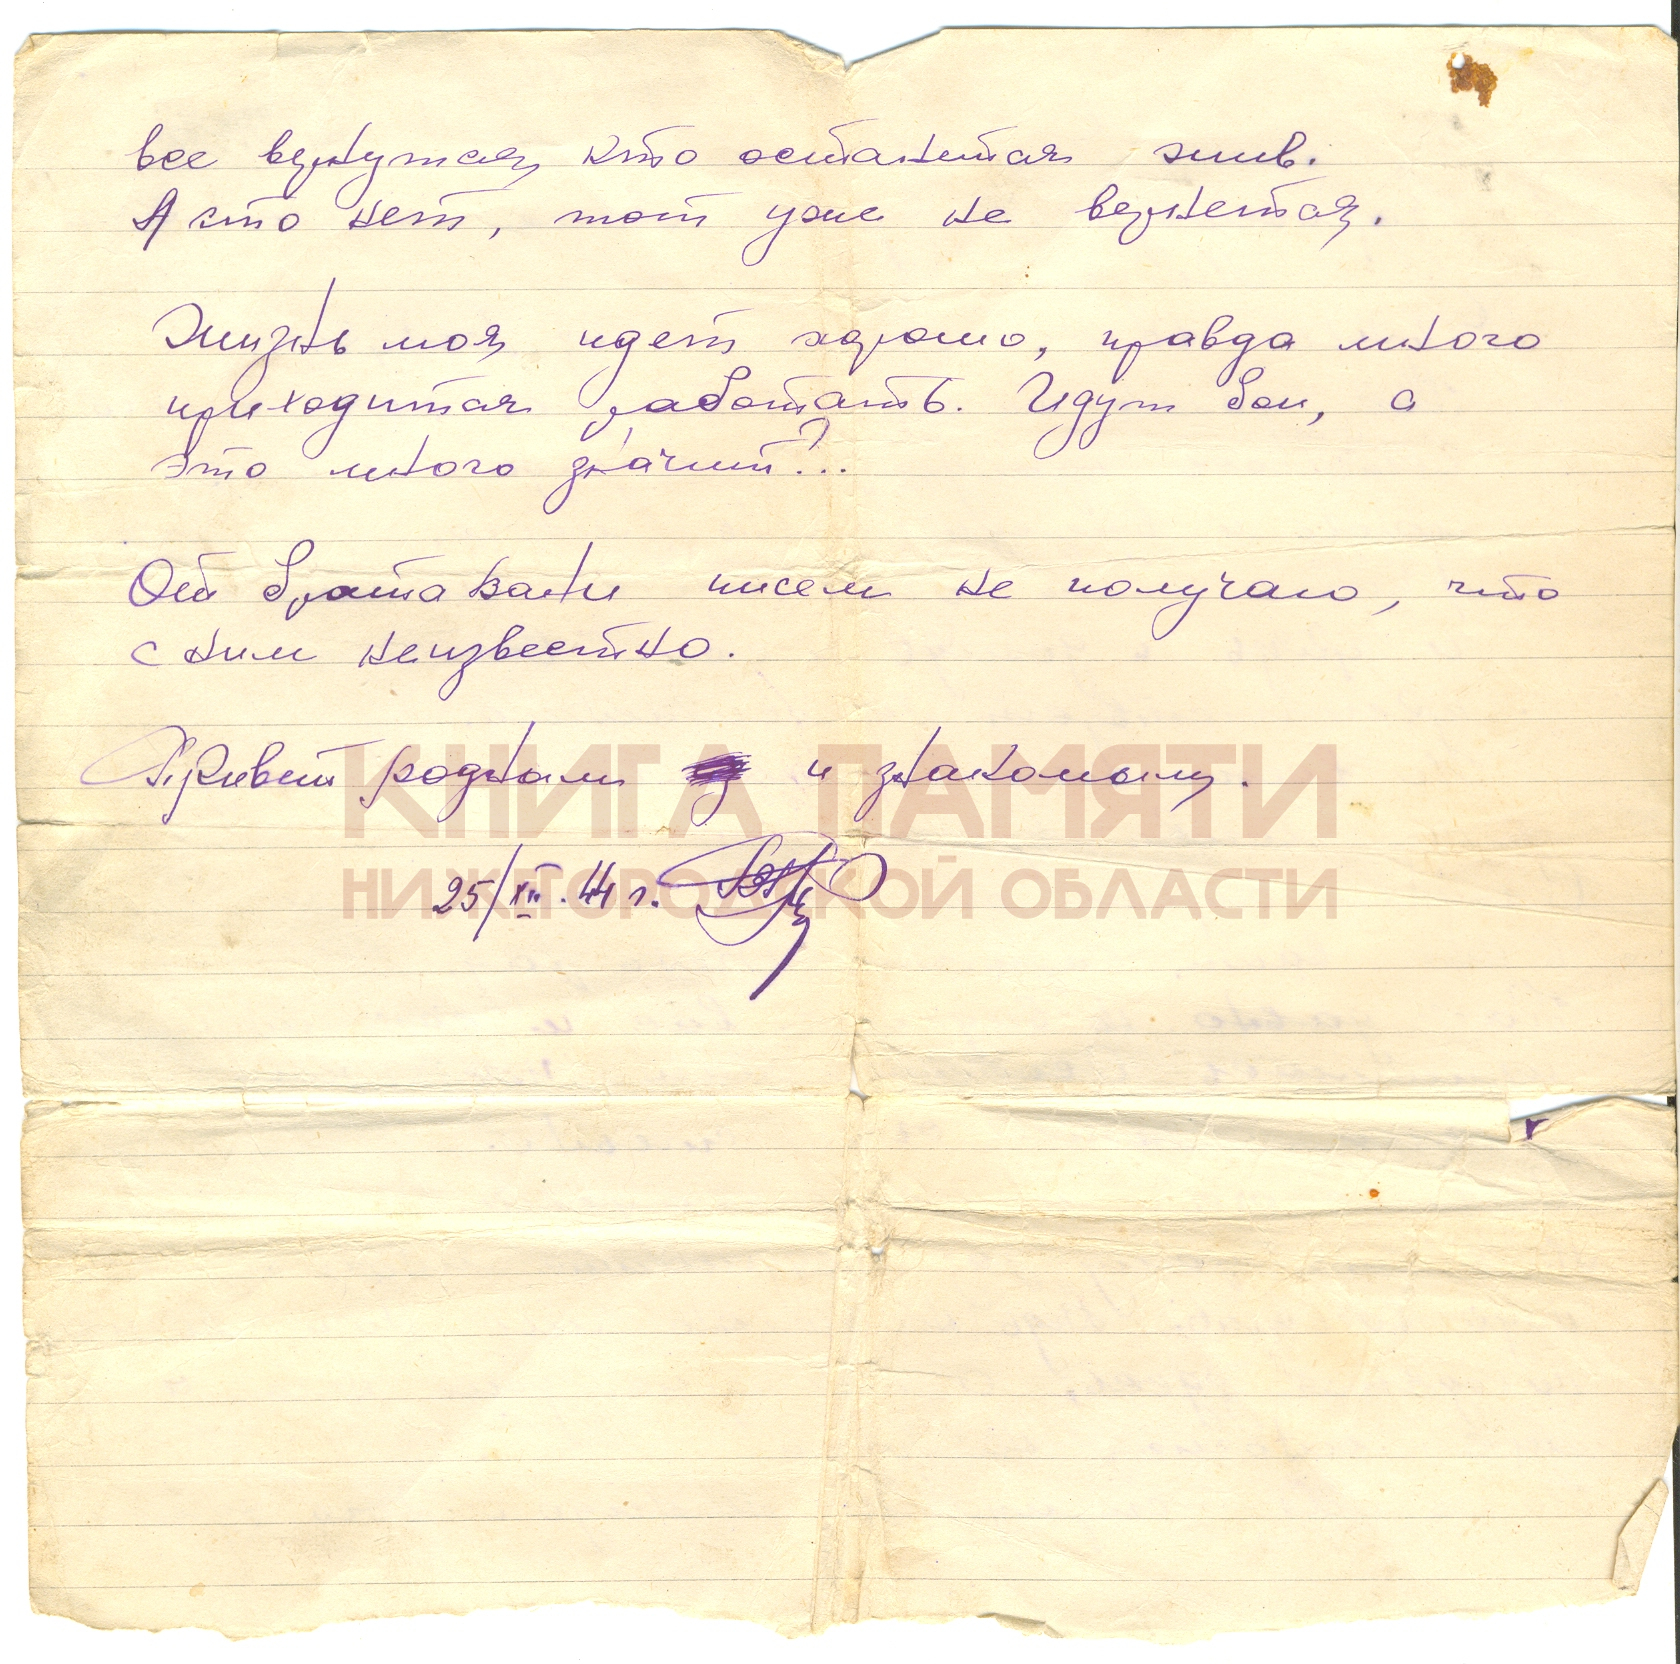 все вернутся, кто останется жив.
А кто нет, тот уже не вернется.
Жизнь моя идет хорошо, правда много
приходится работать. Идут бои, а
это много значит?...
От брата Вани писем не получаю, что
с ним неизвестно.
Привет родным и знакомым.
КНИГА ПАМЯТИ
25/XII.44 г.
НИЖЕГОРОДСКОЙ ОБЛАСТИ